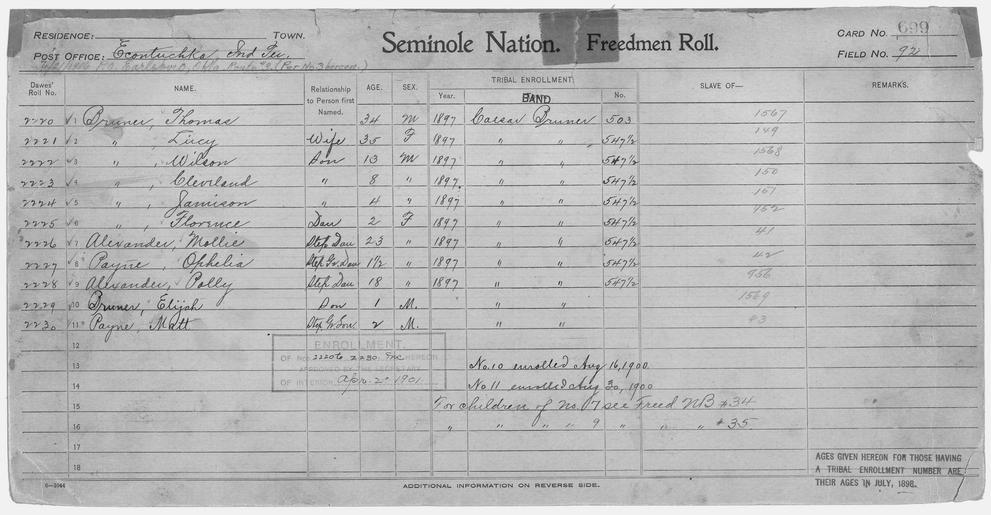 RESIDENCE: TOWN. Seminole Nation. Freedmen Roll. CARD NO. 699
POST OFFICE: Econtuchka, Ind Ter. FIELD NO. 92
P.O. Earlsboro, Okla Route #2 (Per No. 3 hereon.)
Dawes' Roll No. NAME. Relationship to Person first Named. AGE. SEX. TRIBAL ENROLLMENT Year. BAND No. SLAVE OF— REMARKS.
2220 1 Bruner, Thomas 34 M 1897 Caesar Bruner 503 1567
2221 2 " , Lucy Wife 35 F 1897 " " 547½ 149
2222 3 " , Wilson Son 13 M 1897 " " 547½ 1568
2223 4 " , Cleveland " 8 " 1897 " " 547½ 150
2224 5 " , Jamison " 4 " 1897 " " 547½ 151
2225 6 " , Florence Dau 2 F 1897 " " 547½ 152
2226 7 Alexander, Mollie Step Dau 23 " 1897 " " 547½ 41
2227 8 Payne, Ophelia Step Gr. Dau 1½ " 1897 " " 547½ 42
2228 9 Alexander, Polly Step Dau 18 " 1897 " " 547½ 956
2229 10 Bruner, Elijah Son 1 M. " " 1569
2230 11 Payne, Matt Step Gr. Son 2 M. " " 83
12
ENROLLMENT.
13 OF NOS. 2220 to 2230 Inc HEREON No. 10 enrolled Aug 16, 1900
APPROVED BY THE SECRETARY
14 OF INTERIOR Apr. 2 1901 No 11 enrolled Aug 30, 1900
15 For children of No. 7 see Freed NB #34
16 " " " " 9 " " " #35
17
18
AGES GIVEN HEREON FOR THOSE HAVING
A TRIBAL ENROLLMENT NUMBER ARE
THEIR AGES IN JULY, 1898.
6-3944 ADDITIONAL INFORMATION ON REVERSE SIDE.